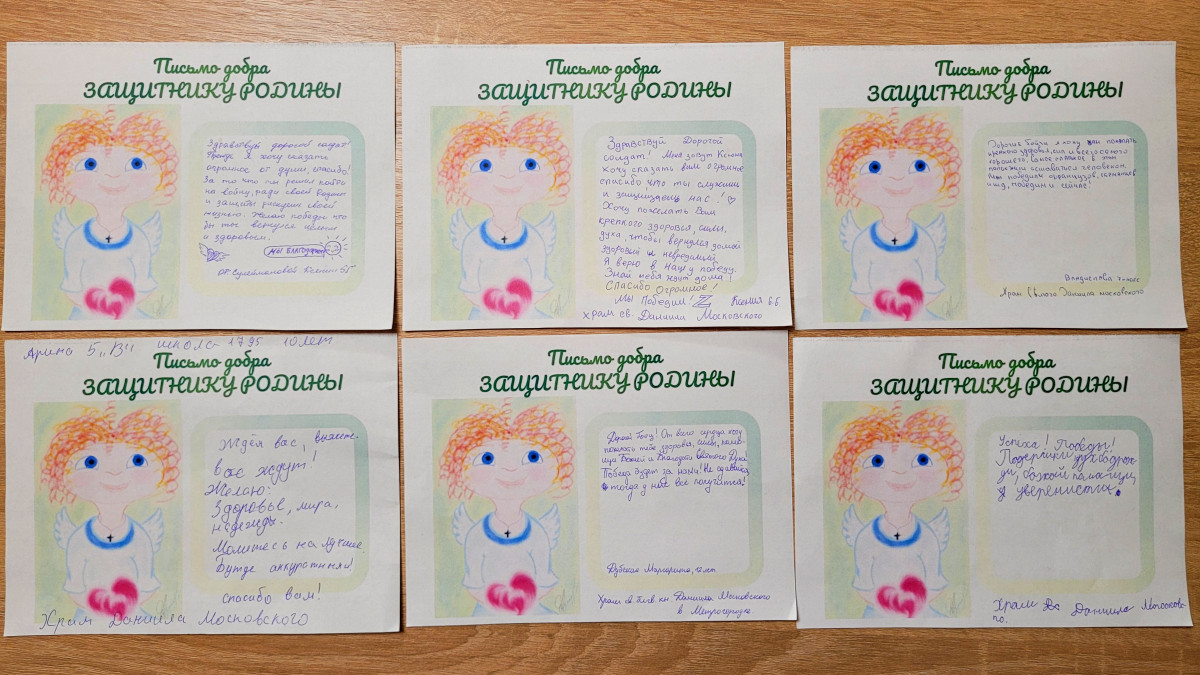 Письмо добра
ЗАЩИТНИКУ РОДИНЫ
Здравствуй дорогой солдат!
Я хочу сказать
огромное от души, спасибо!
За то что ты решил пойти
на войну, ради своей Родины
и защиты рискуешь своей
жизнью. Желаю победы что
бы ты вернулся целым
и здоровым.
МЫ БЛАГОДАРНЫ
от Сулеймановой Ксении 5Г
Письмо добра
ЗАЩИТНИКУ РОДИНЫ
Здравствуй Дорогой
солдат! Меня зовут Ксения
хочу сказать вам огромное
спасибо что ты служишь
и защищаешь нас! ♡
Хочу пожелать Вам
крепкого здоровья, силы,
духа, чтобы вернулся домой
здоровый и невредимый.
Я верю в нашу победу.
Знай тебя ждут дома!
Спасибо Огромное!
Мы Победим! Z Ксения 6Е
храм св. Даниила Московского
Письмо добра
ЗАЩИТНИКУ РОДИНЫ
Дорогие бойцы я хочу вам пожелать
крепкого здоровья, сил и всего самого
хорошего. Самое главное в этих
оставаться человеком.
победили французов,
и победим и сейчас!
Владислава 7 класс
Храм Святого Даниила московского
Арина 5 "В" школа 1795 10 лет
Письмо добра
ЗАЩИТНИКУ РОДИНЫ
Ждём вас,
вас ждут!
Желаю:
Здоровье, мира,
надежды.
Молитесь на лучшее.
Будте аккуратными
спасибо вам!
Храм Даниила Московского
Письмо добра
ЗАЩИТНИКУ РОДИНЫ
Дорогой боец! От всего сердца хочу
пожелать тебе здоровья, силы, помо-
щи Божией и Благодати Святого Духа
Победа будет за нами! Не сдавайся,
и тогда у нас все получится!
Маргарита,
Храм св. блгв. кн. Даниила Московского
в Метрогородке
Письмо добра
ЗАЩИТНИКУ РОДИНЫ
Успеха! Победы!
божьей помощи,
уверенисти.
Храм Даниила Московско-
го.